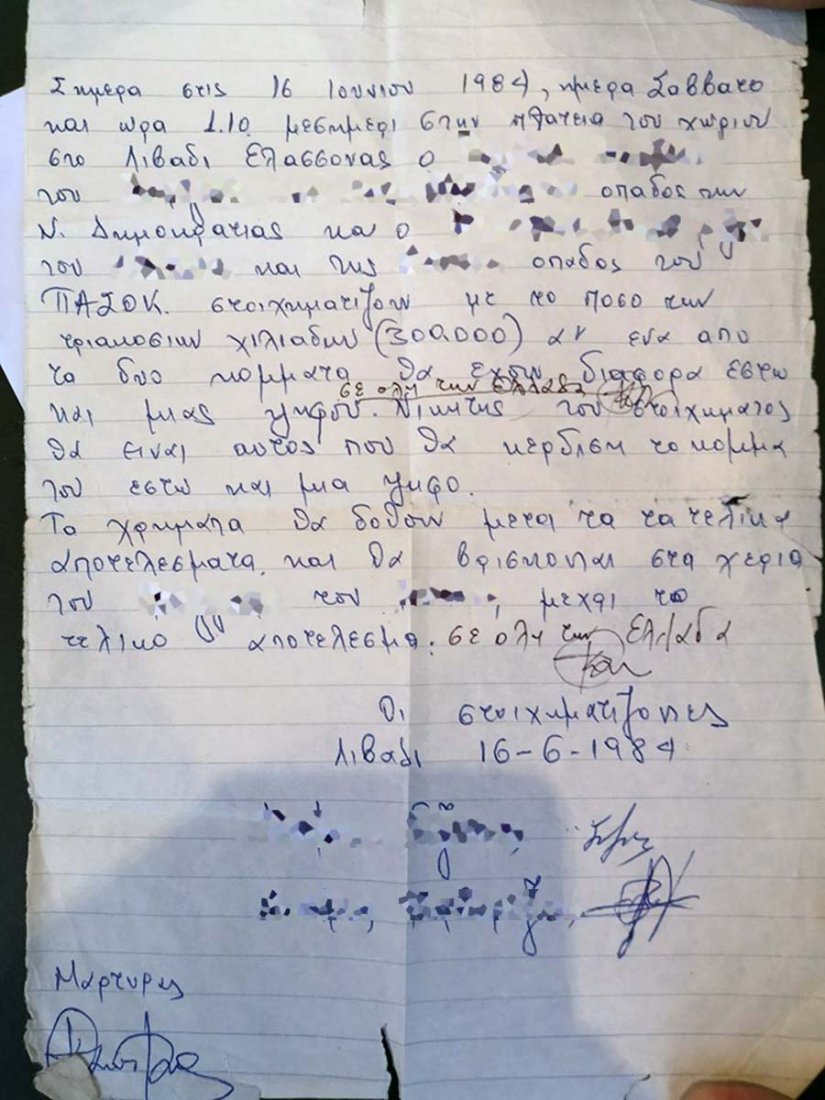 Σημερα στις 16 Ιουνιου 1984, ημερα Σαββατο
και ωρα 1.10 μεσημμερι στην πλατεια του χωριου
στο Λιβαδι Ελασσονας ο
του οπαδος της
Ν. Δημοκρατιας και ο
του και της οπαδος του
ΠΑΣΟΚ. στοιχηματιζουν με το ποσο των
τριακοσιων χιλιαδων (300.000) αν ενα απο
τα δυο κομματα θα εχουν διαφορα εστω
σε ολη την Ελλαδα
και μιας ψηφου. Νικητης του στοιχηματος
θα ειναι αυτος που θα κερδιση το κομμα
του εστω και μια ψηφο.
Τα χρηματα θα δοθουν μετα τα τελικα
αποτελεσματα, και θα βρισκονται στα χερια
του του , μεχρι το
τελικο αποτελεσμα. σε ολη την Ελλαδα
Οι στοιχηματιζοντες
Λιβαδι 16-6-1984
Μαρτυρες